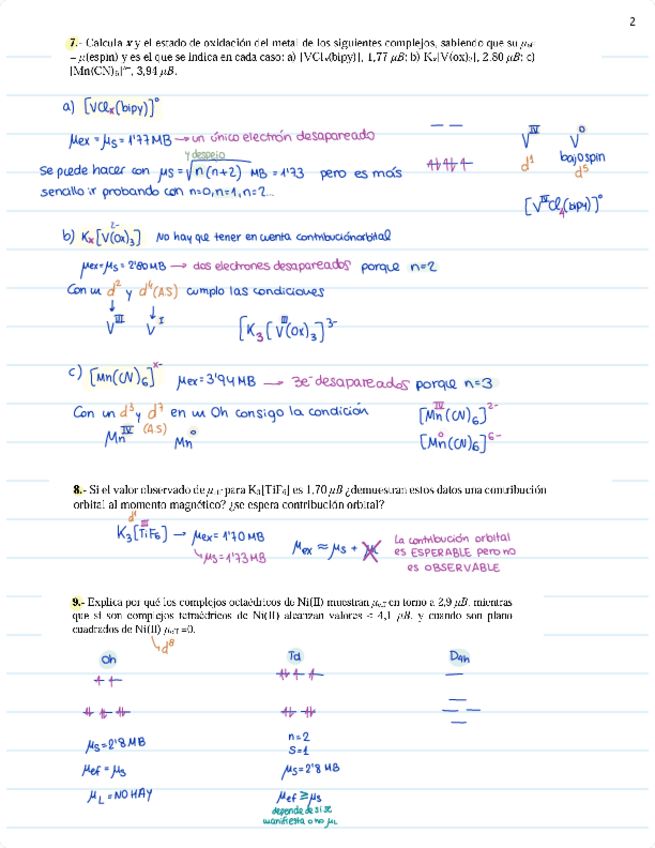 2
7.- Calcula x y el estado de oxidación del metal de los siguientes complejos, sabiendo que su μef
= μ(espin) y es el que se indica en cada caso: a) [VClx(bipy)], 1,77 μB; b) Kx[V(ox)3], 2.80 μB; c)
[Mn(CN)6]x-, 3,94 μB.
a) [VClx(bipy)]⁰
μex = μs = 1'77MB → un único electrón desapareado
y despejo
Se puede hacer con μs = √n(n+2) MB = 1'73 pero es más
sencillo ir probando con n=0, n=1, n=2...
V^IV V^0
d¹ bajo spin
d⁵
[V^IV Cl4(bipy)]⁰
b) Kx[V(ox)3] 2- No hay que tener en cuenta contribución orbital
μex=μs = 2'80MB → dos electrones desapareados porque n=2
Con un d² y d⁴(A.S) cumplo las condiciones
V^III V^I [K3[V^III(ox)3]^3-
c) [Mn(CN)6]^x- μex=3'94MB → 3e⁻ desapareados porque n=3
Con un d³ y d⁷ en un Oh consigo la condición [Mn^IV(CN)6]^2-
Mn^IV (A.S) Mn^0 [Mn^0(CN)6]^6-
8.- Si el valor observado de μef para K3[TiF6] es 1,70 μB ¿demuestran estos datos una contribución
orbital al momento magnético? ¿se espera contribución orbital?
d¹
K3[Ti^III F6] → μex=1'70MB
↳ μs=1'73MB
μex ≈ μs +
La contribución orbital
es ESPERABLE pero no
es OBSERVABLE
9.- Explica por qué los complejos octaédricos de Ni(II) muestran μef en torno a 2,9 μB, mientras
que si son complejos tetraédricos de Ni(II) alcanzan valores < 4,1 μB, y cuando son plano
cuadrados de Ni(II) μef =0.
↳ d⁸
Oh Td D4h
μs=2'8MB
μef = μs
μL = NO HAY
n=2
S=1
μs=2'8 MB
μef ≥ μs
depende de si se
manifiesta o no μL